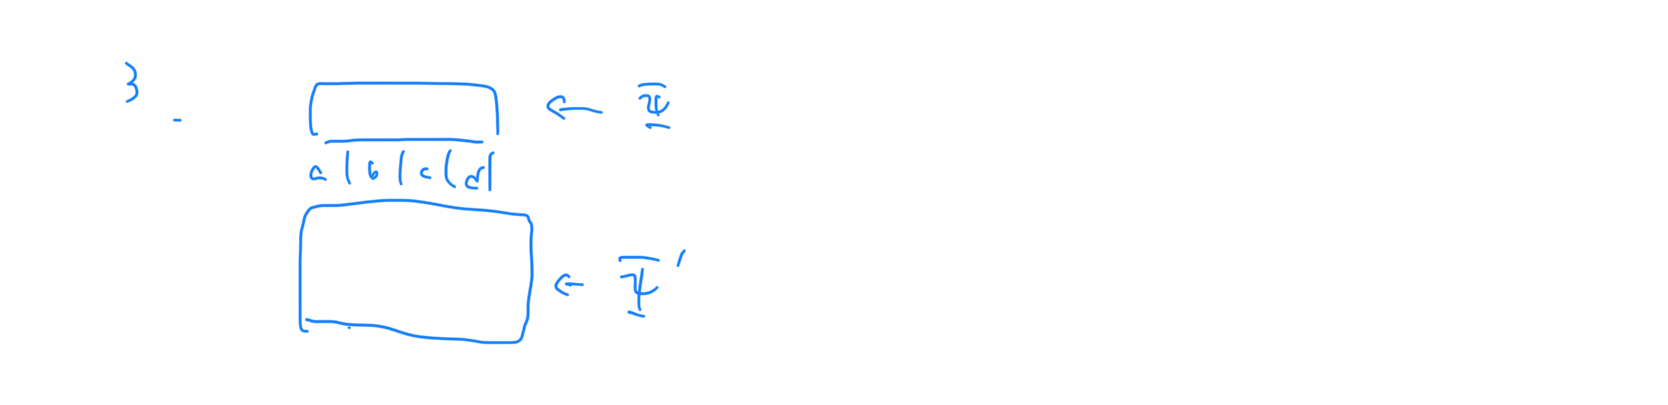 3. ← Ψ
a | b | c | d |
← Ψ'